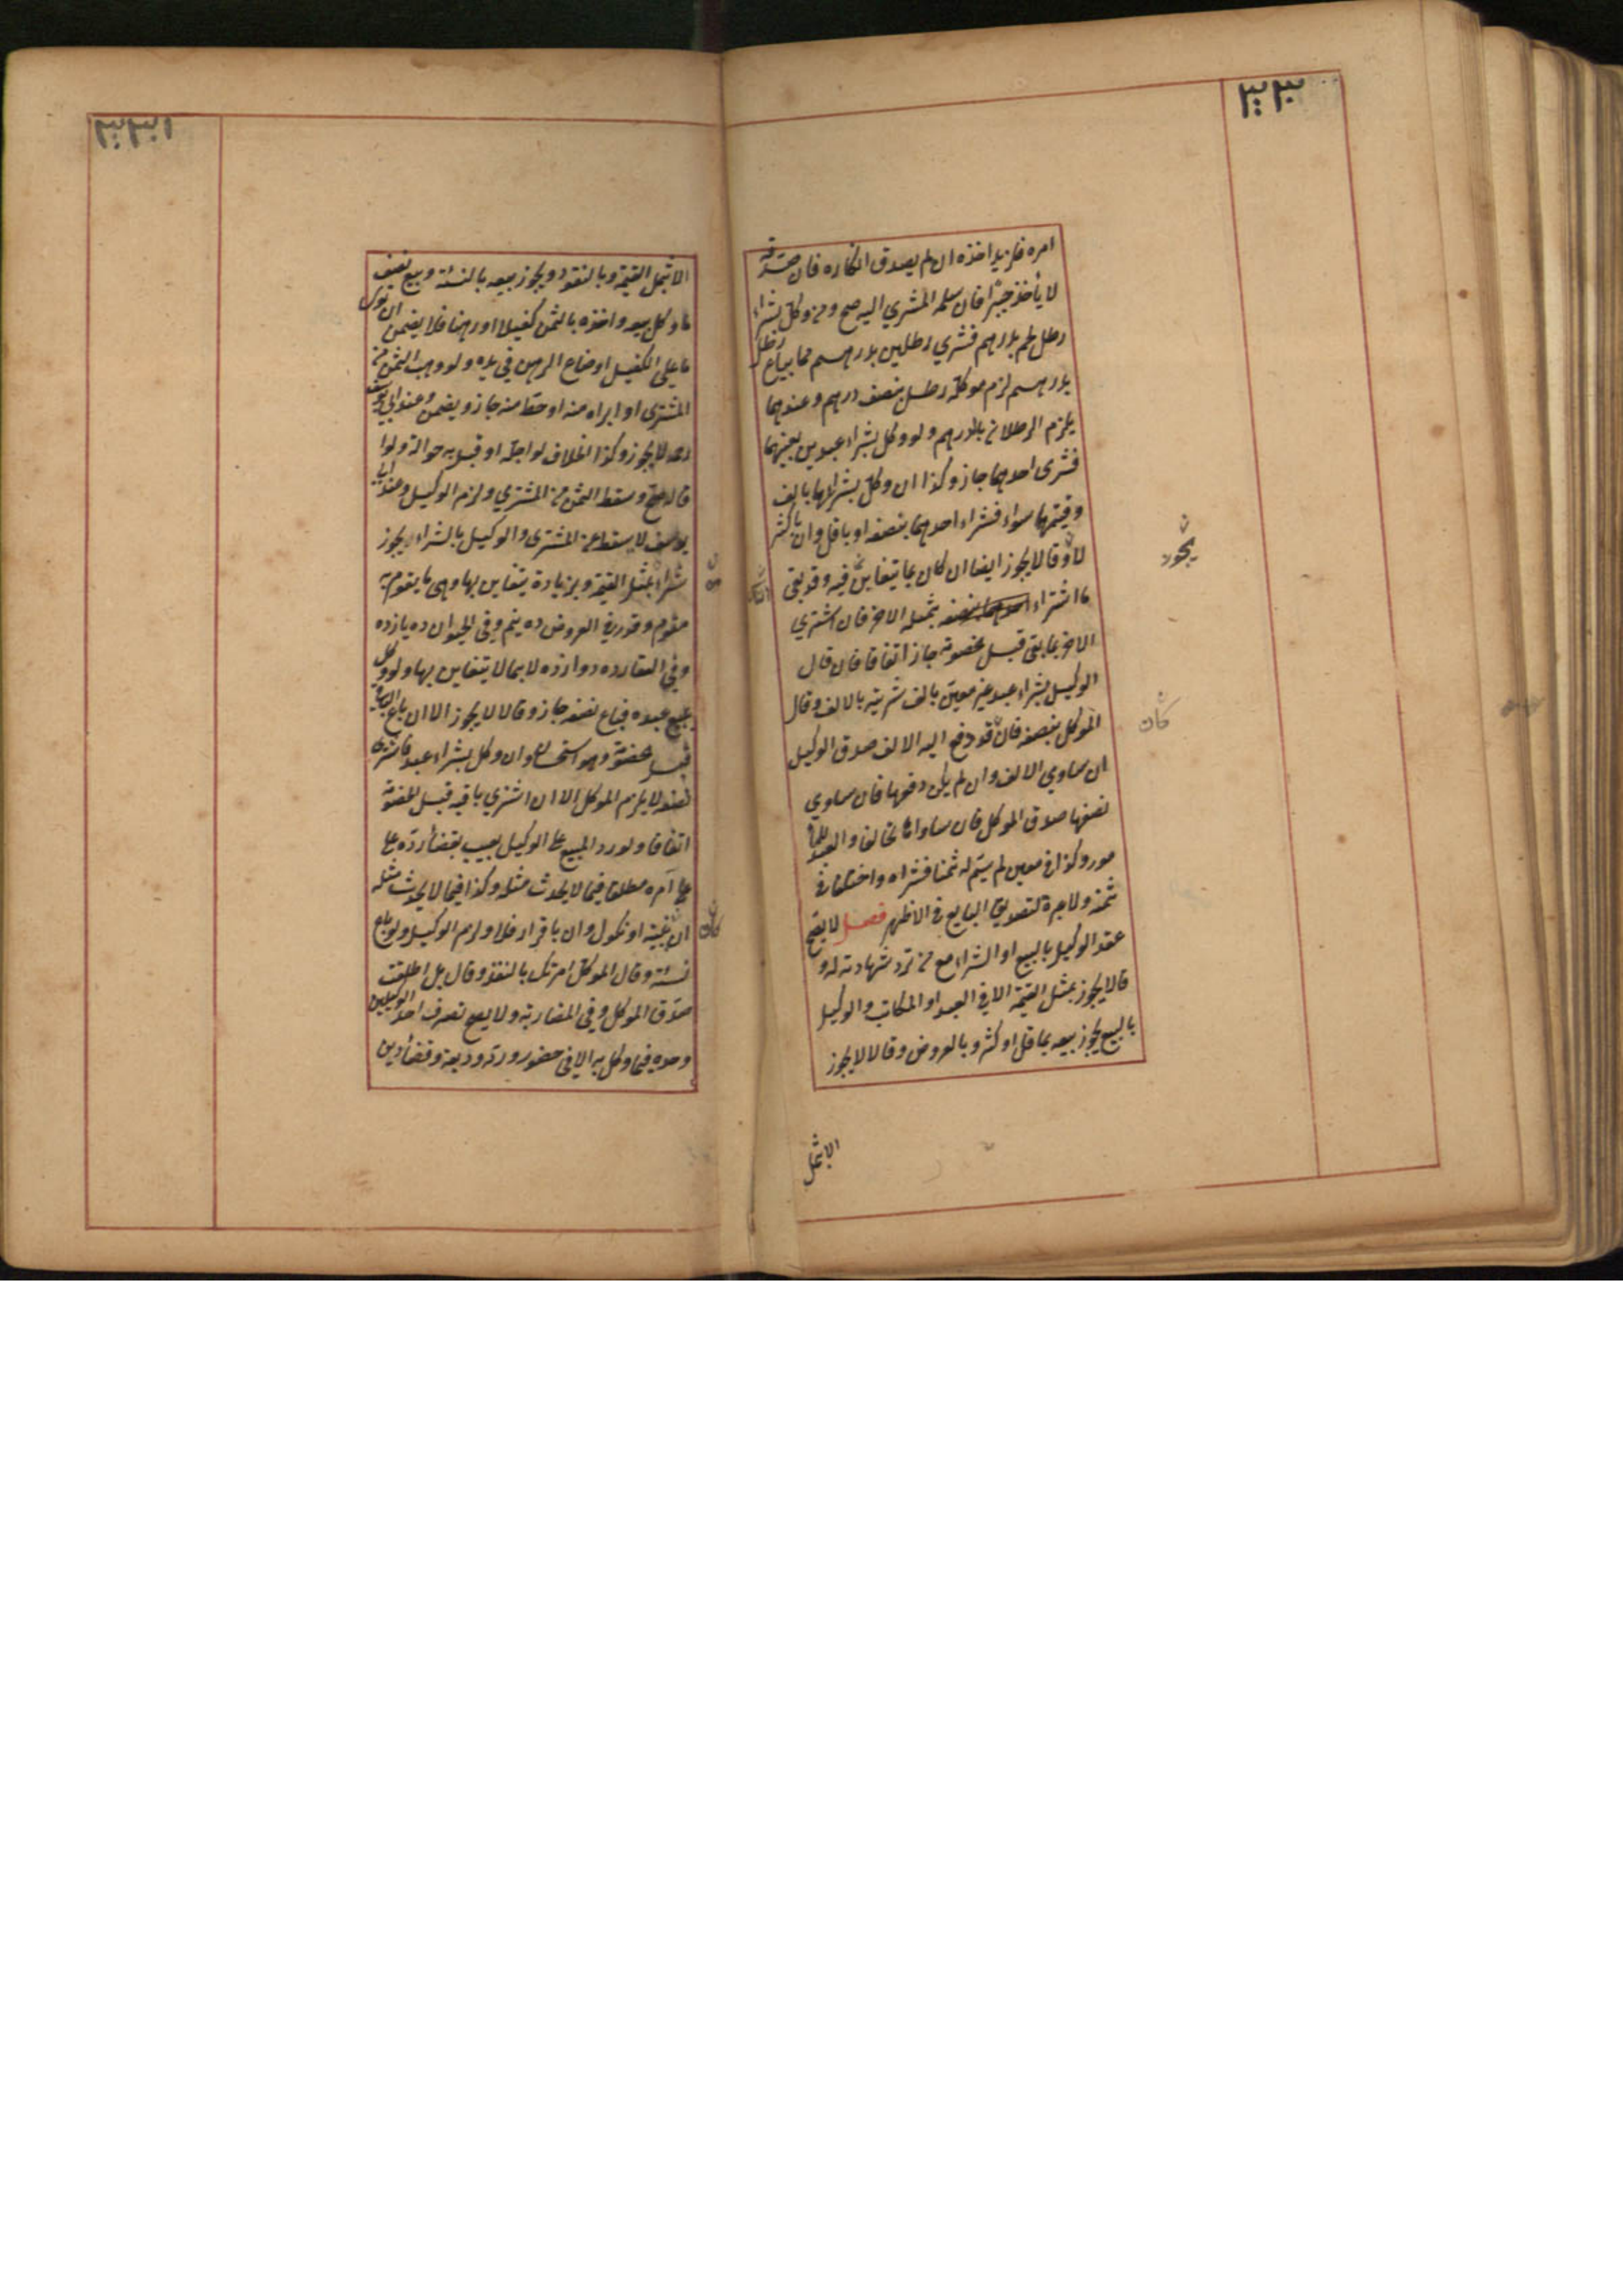 ٣٣٠
امره فلزيد اخذه ان لم يصدق انكاره فان صدقه
لا يأخذ جبرا فان سلمه المشتري اليه صح ومن وكل بشراء
رطل لحم بدرهم فشري رطلين بدرهم مما يباع رطل
بدرهم لزم موكله رطل بنصف درهم وعندهما
يلزم الرطلان بالدرهم ولو وكل بشراء عبدين بعينهما
فشرى احدهما جاز وكذا ان وكل بشرائهما بالف
وقيمتهما سواء فشراء احدهما بنصفه او باقل وان باكثر
لا وقالا يجوز ايضا ان كان بما يتغابن فيه وقد بقي
ما اشتراء بمثله الاخر فان اشتري
الاخر بما بقى قبل خصومة جاز اتفاقا فان قال
الوكيل بشراء عبد غير معين بالف شريته بالالف وقال
الموكل بنصفه فان قد دفع اليه الالف صدق الوكيل
ان ساوي الالف وان لم يكن دفعها فان ساوي
نصفها صدق الموكل فان ساواها تحالفا والعبد للمأ
مور وكذا في معين لم يسم له ثمنا فشراه واختلفا في
ثمنه ولا عبرة لتصديق البايع في الاظهر فصل لا يصح
عقد الوكيل بالبيع او الشراء مع من ترد شهادته له و
قالا يجوز بمثل القيمة الا في العبد او المكاتب والوكيل
بالبيع يجوز بيعه بما قل او كثر وبالعروض وقالا لا يجوز
الا بمثل
يجوز
كان
٣٣١
الا بمثل القيمة وبالنقود ويجوز بيعه بالنسئة وبيع نصف
ما وكل ببيعه واخذه بالثمن كفيلا او رهنا فلا يضمن ان توى
ما على الكفيل او ضاع الرهن في يده ولو وهب الثمن من
المشتري او ابراه منه او حط منه جاز ويضمن وعند ابي يوسف
رحه لا يجوز وكذا الخلاف لو اجله او قبل به حوالة ولو ا
قاله صح وسقط الثمن من المشتري ولزم الوكيل وعند ابي
يوسف لا يسقط عن المشتري والوكيل بالشراء يجوز
شراءه بمثل القيمة وبزيادة يتغابن بها وهي ما يقوم به
مقوم وقدر في العروض ده نيم وفي الحيوان ده يازده
وفي العقار ده دوازده لا بما لا يتغابن بها ولو وكل
ببيع عبده فباع نصفه جاز وقالا لا يجوز الا ان باع الباقي
قبل خصومة وهو استحسان وان وكل بشراء عبد فاشترى
نصفه لا يلزم الموكل الا ان اشتري باقيه قبل الخصومة
اتفاقا ولو رد المبيع على الوكيل بعيب بقضاء رده على
على آمره مطلقا فيما لا يحدث مثله وكذا فيما لا يحدث مثله
ان ببينة او نكول وان باقرار فلا ولزم الوكيل ولو باع
نسئة وقال الموكل امرتك بالنقد وقال بل اطلقت
صدق الموكل وفي المضاربة ولا يصح تصرف احد الوكيلين
وحده فيما وكل به الا في خصور ورد وديعة وقضاء دين
كان